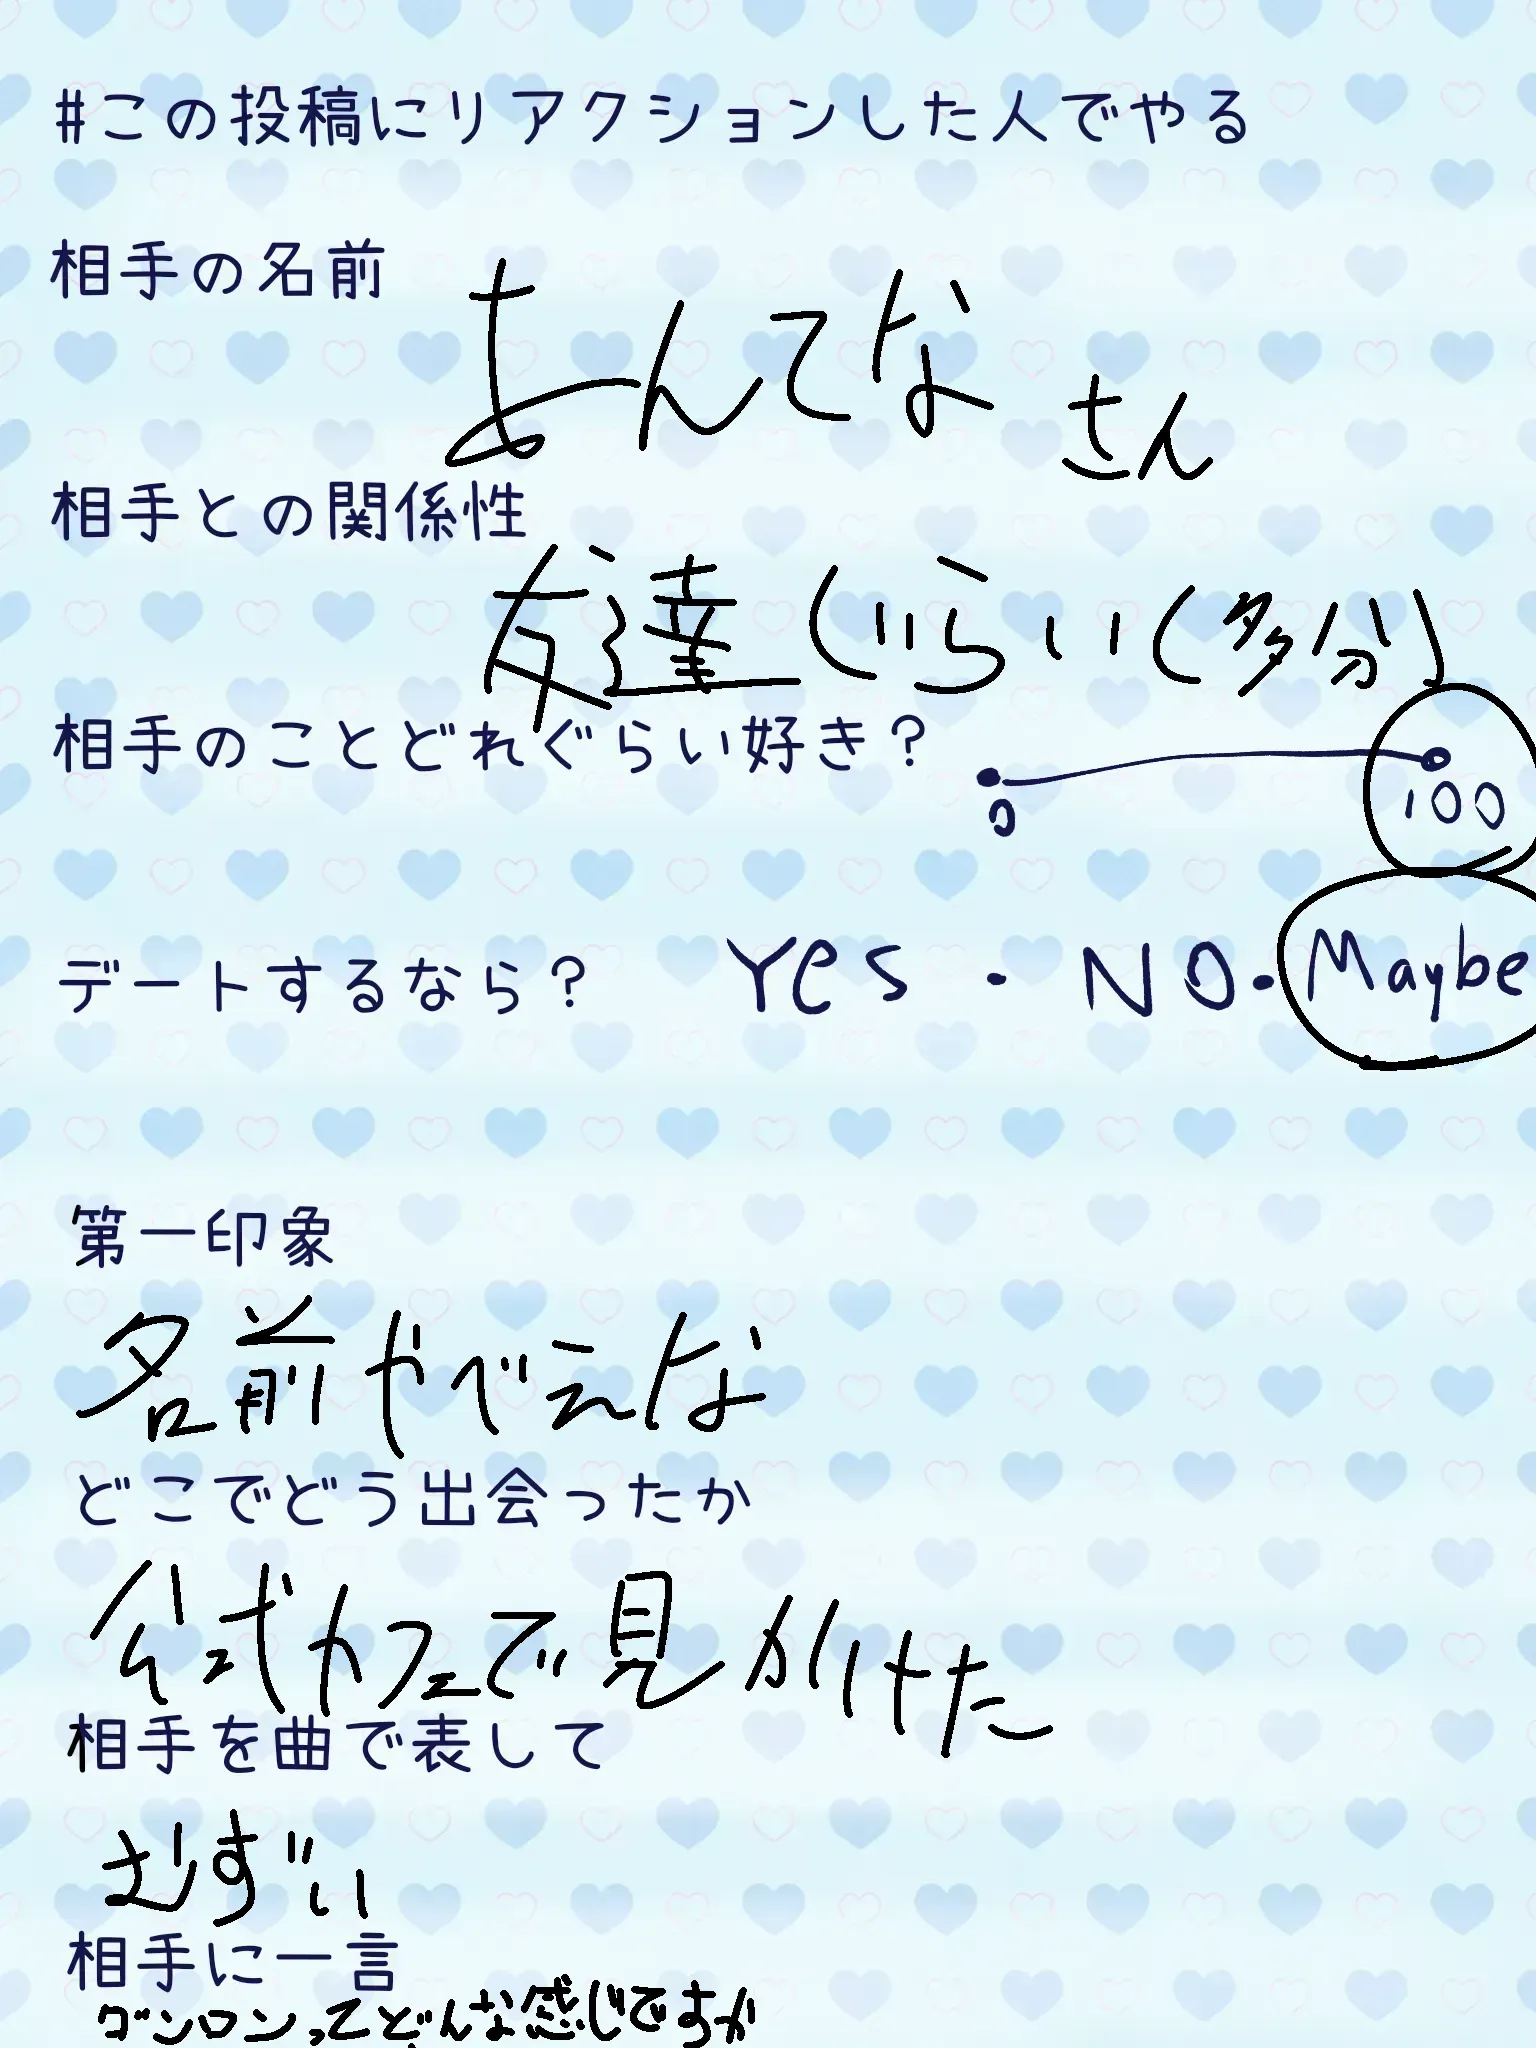 #この投稿にリアクションした人でやる
相手の名前
あんてなさん
相手との関係性
友達ぐらい(多分)
相手のことどれぐらい好き?
0 100
デートするなら? Yes・NO・Maybe
第一印象
名前やべえな
どこでどう出会ったか
公式カフェで見かけた
相手を曲で表して
むずい
相手に一言
ダンロンってどんな感じですか